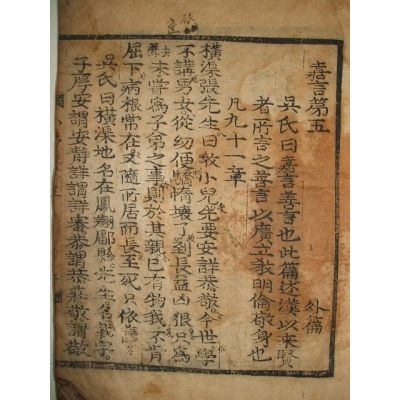 嘉言第五
外篇
吳氏曰嘉言善言也此篇述漢以來賢
者所言之善言以廣立敎明倫敬身也
凡九十一章
橫渠張先生曰敎小兒先要安詳恭敬今世學
不講男女從幼便驕惰壞了到長益凶狠只爲
未嘗爲子弟之事則於其親已有物我不肯
屈下病根常在又隨所居而長至死只依舊
吳氏曰橫渠地名在鳳翔郿縣先生名載字
子厚安謂安靜詳謂詳審恭謂恭莊敬謂敬